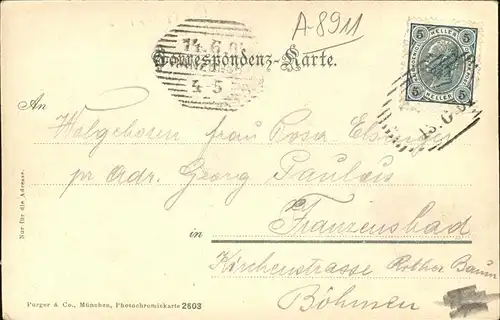 A-8911
14.6.0
4-5
Correspondenz-Karte.
5 5
HELLER HELLER
5 5
13.6.0
An
Wolgeboren frau Rosa
pr Adr. Georg Paulus
Franzensbad
in
Kirchenstrasse Rother Baum
Böhmen
Nur für die Adresse.
Purger & Co., München, Photochromiekarte 2603